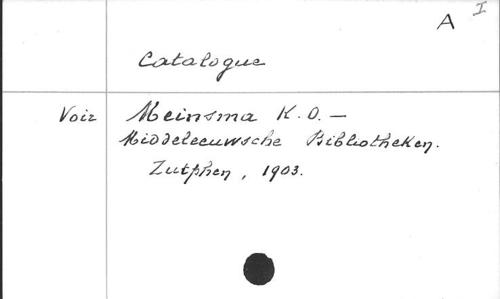 A I
Catalogue
Voir Meinsma K. O. —
Middeleeuwsche Bibliotheken.
Zutphen, 1903.